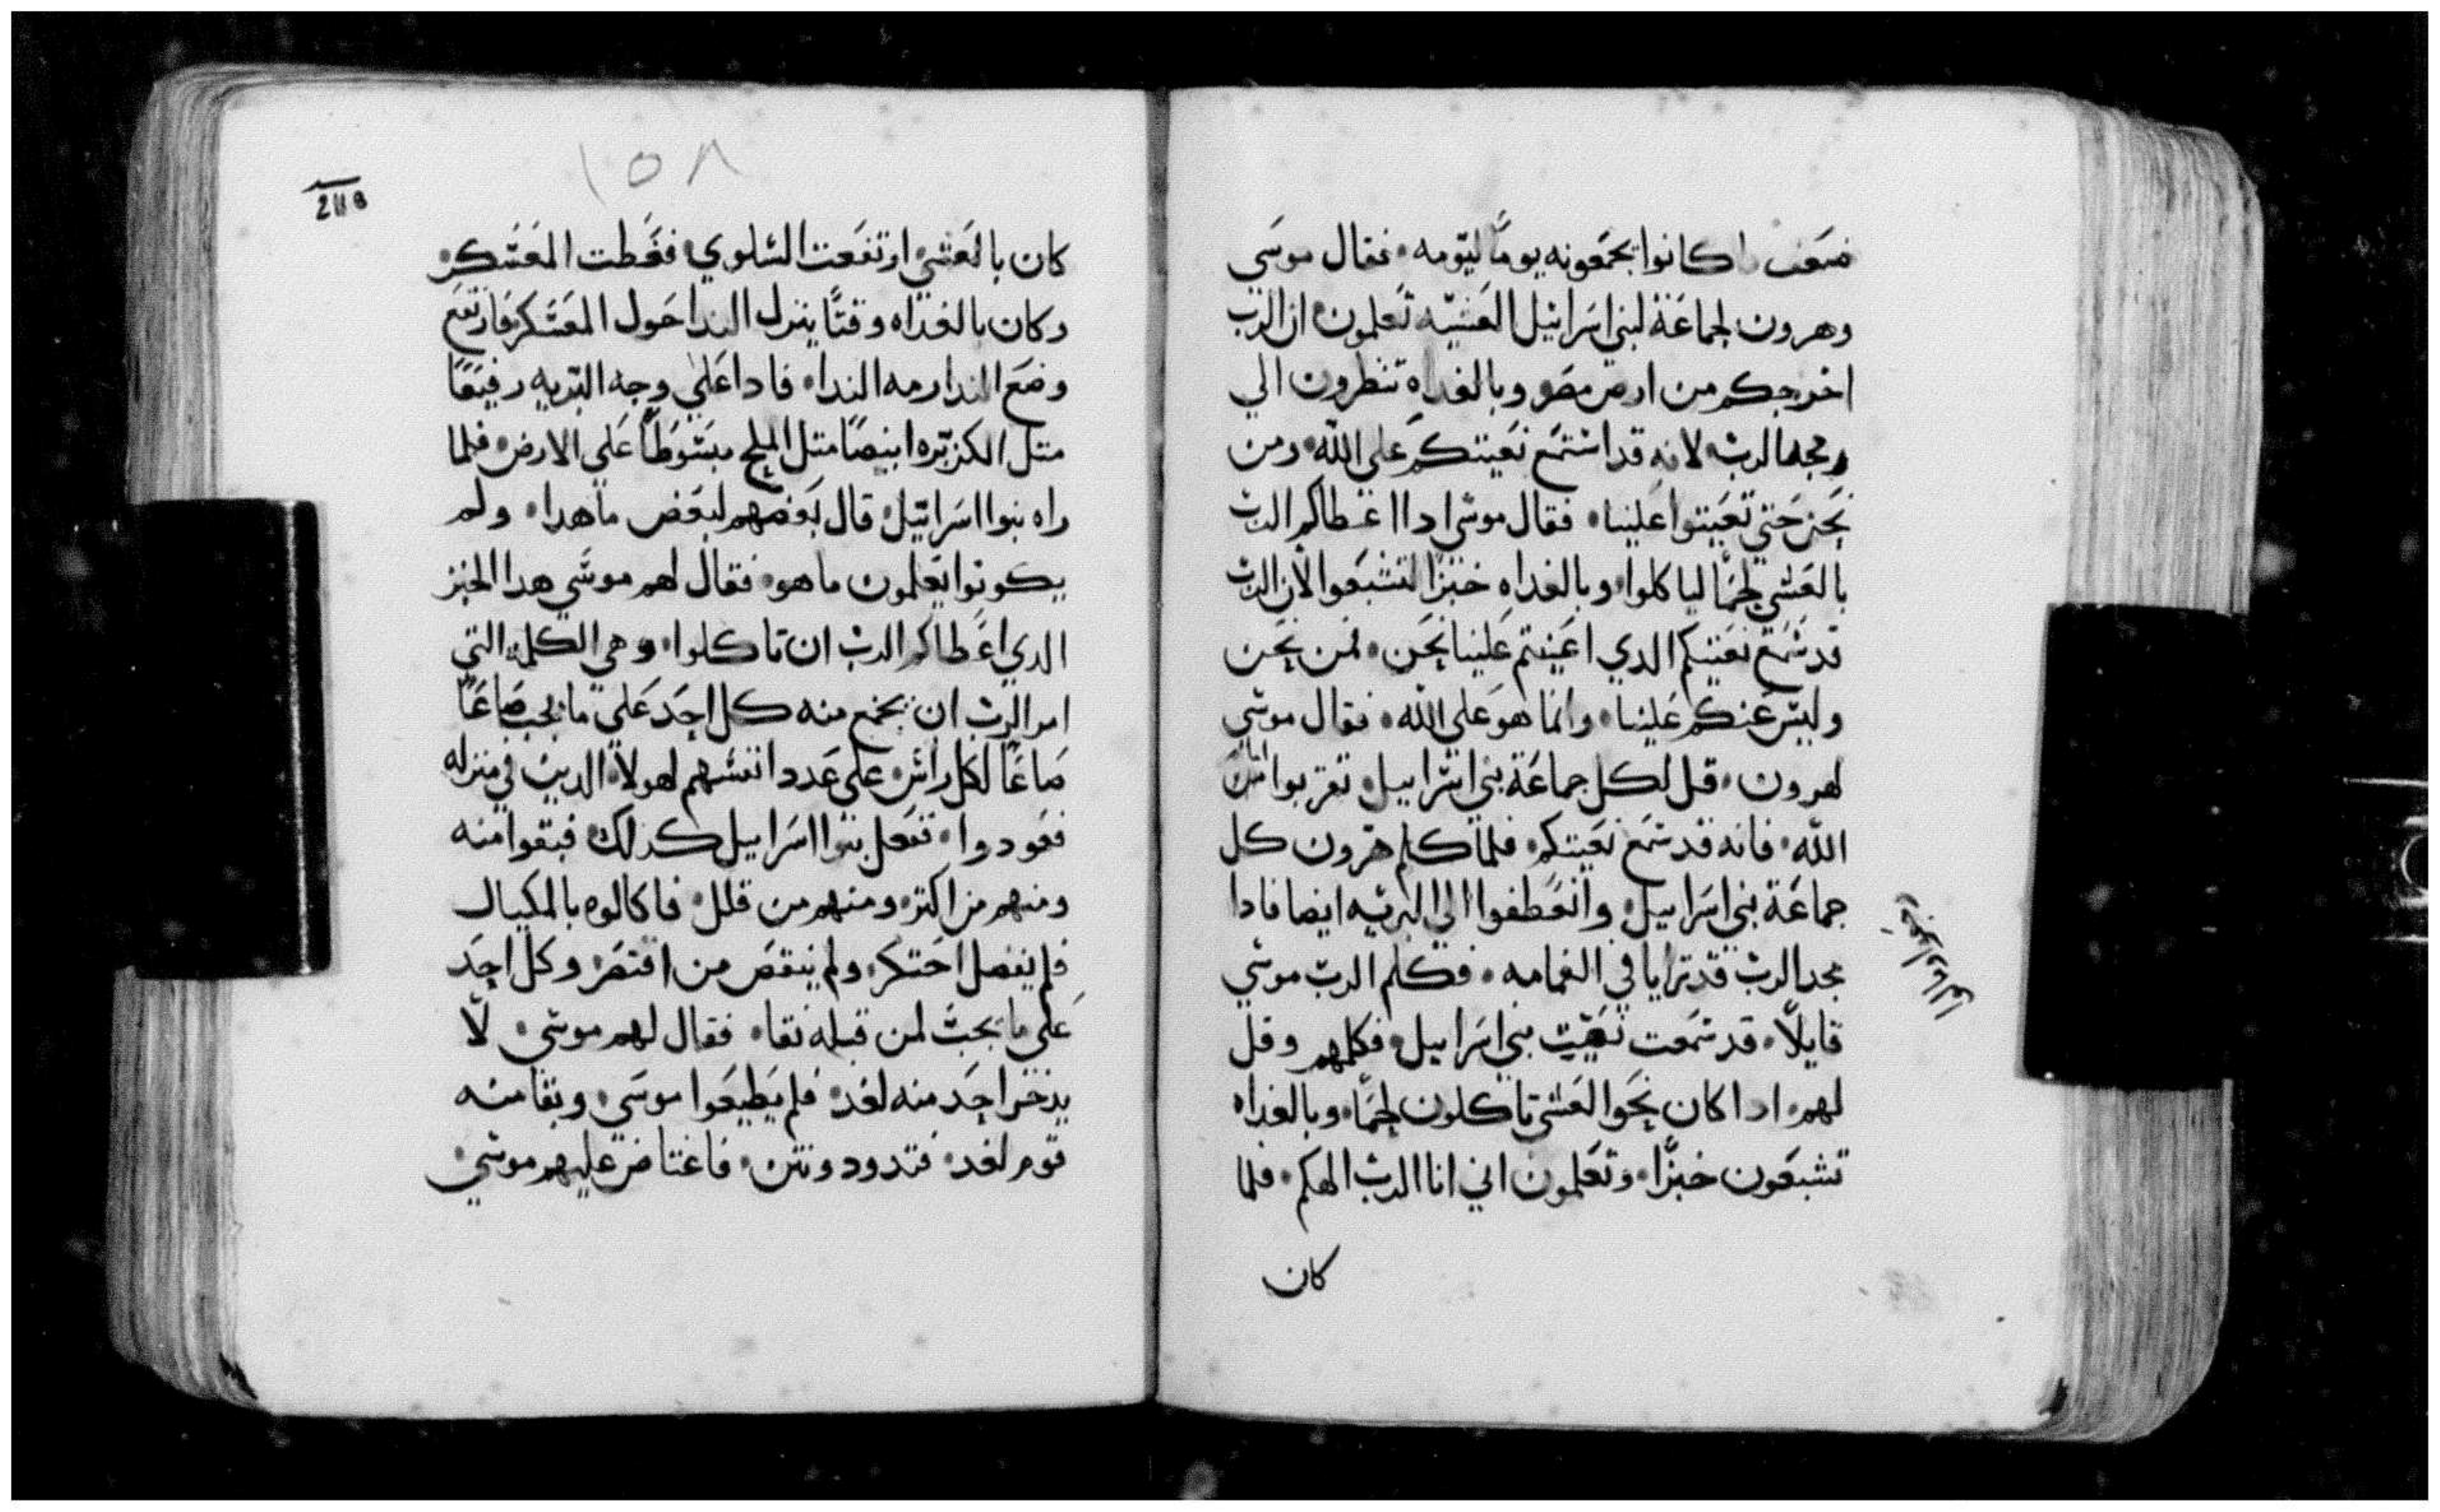 ضعف ما كانوا يجمعونه يومًا ليومه. فقال موسي
وهرون لجماعة لبني اسرائيل العشيه تعلمون ان الرب
اخرجكم من ارض مصر وبالغداه تنظرون الي
مجد الرب لانه قد استمع نعيتكم علي الله. ومن
نحن حتي تعيتوا علينا. فقال موسي ادا اعطاكم الرب
بالعشي لحمًا لياكلوا وبالغداه خبزًا لتشبعوا لان الرب
قد سمع نعيتكم الدي اعيتم علينا نحن. فمن نحن
وليس عنكم علينا. وانما هو علي الله. فقال موسي
لهرون. قل لكل جماعة بني اسراييل تقربوا امام
الله. فانه قد سمع نعيتكم. فلما كلم هرون كل
جماعة بني اسراييل وانعطفوا الي البريه ايضا فادا
مجد الرب قد ترايا في الغمامه. فكلم الرب موسي
قايلًا. قد سمعت نعيت بني اسراييل فكلمهم وقل
لهم. ادا كان نحو العشي تاكلون لحمًا وبالغداه
تشبعون خبزًا. وتعلمون اني انا الرب الهكم. فلما
كان
١٥٨
كان بالعشي ارتفعت السلوي فغطت المعسكر.
وكان بالغداه وقتًا ينزل الندا حول المعسكر فارتفع
وضع الندا رمه الندا. فادا علي وجه البريه رفيعًا
متل الكزبره ابيضًا متل الملح مبسوطًا علي الارض فلما
راه بنوا اسرائيل قال بعضهم لبعض ما هدا. ولم
يكونوا يعلمون ما هو. فقال لهم موسي هدا الخبز
الدي اعطاكم الرب ان تاكلوا. وهي الكلمه التي
امر الرب ان يجمع منه كل احد علي ما يجب صاعًا
صاعًا لكل راس علي عدد انفسهم لهولا الدين في منزله
فعودوا. تفعل بنوا اسراييل كدلك فبقوا منه
ومنهم من اكتر. ومنهم من قلل. فاكالوه بالمكيال
فلم يفضل احتكر. ولم ينقص من اقتصر. وكل احد
علي ما يجب لمن قبله نقا. فقال لهم موسي. لا
يدخر احد منه لغد. فلم يطيعوا موسي. وبقا منه
قوم لغد. فتدود ونتن. فاغتاض عليهم موسي